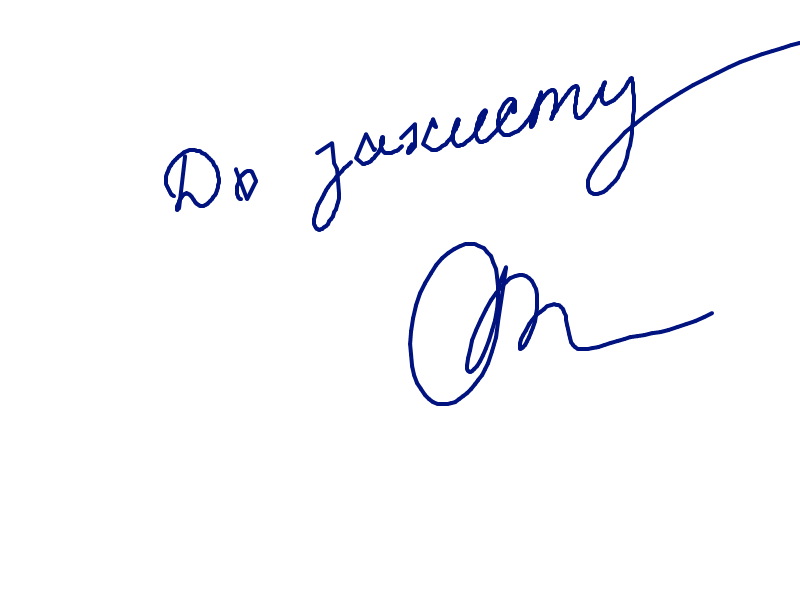 До захисту